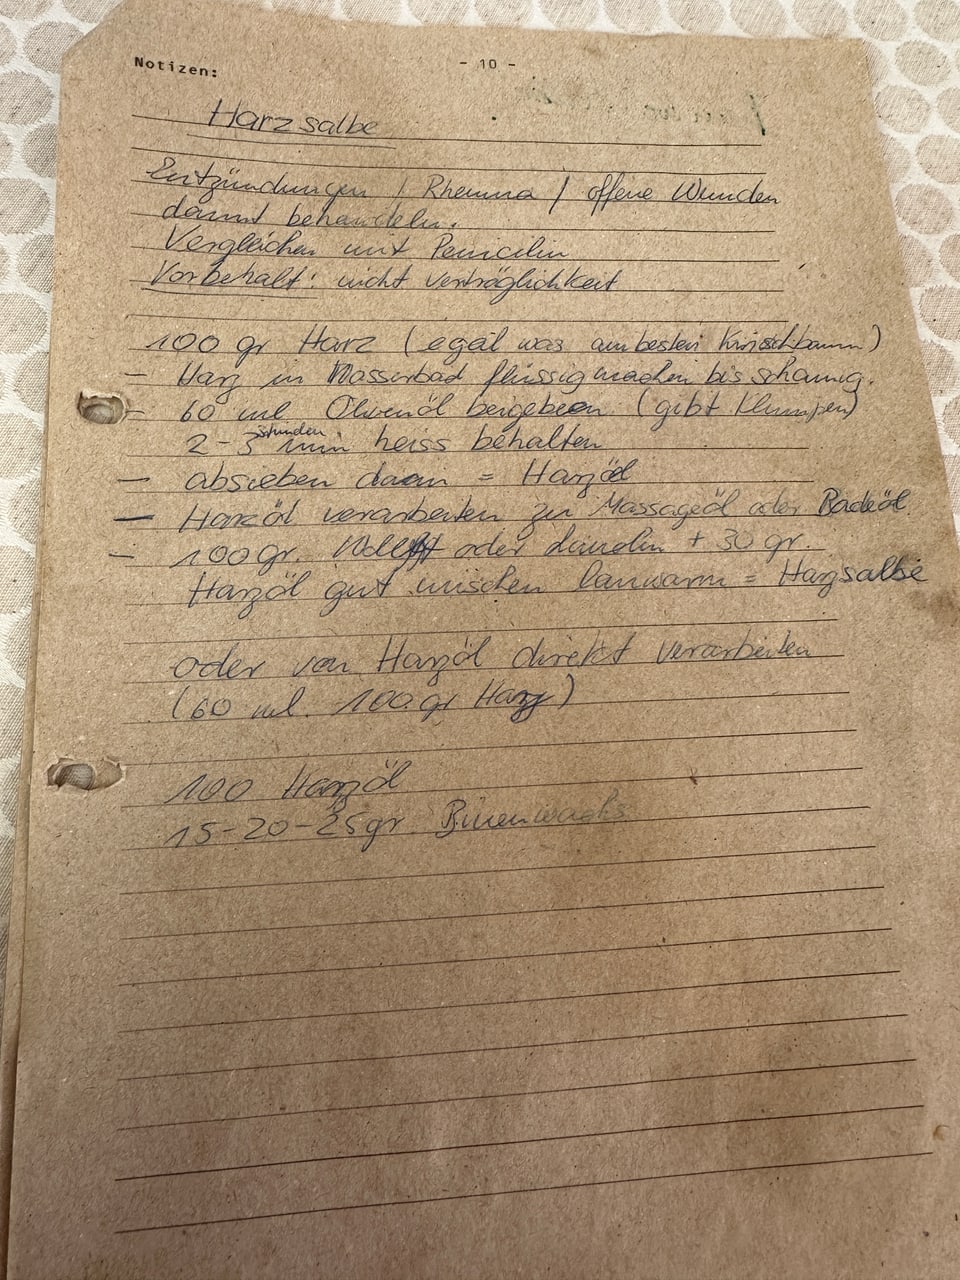 Notizen: - 10 -
Harzsalbe
Entzündungen / Rheuma / offene Wunden
damit behandeln.
Vergleichen mit Penicilin
Vorbehalt: nicht verträglichkeit
100 gr Harz (egal was am besten Kirschbaum)
- Harz im Wasserbad flüssig machen bis schaumig.
- 60 ml Olivenöl beigeben (gibt Klumpen)
2-3 stunden min heiss behalten
- absieben dann = Harzöl
- Harzöl verarbeiten zu Massageöl oder Badeöl.
- 100 gr. oder + 30 gr.
Harzöl gut mischen lauwarm = Harzsalbe
oder von Harzöl direkt verarbeiten
(60 ml. 100 gr Harz)
100 Harzöl
15-20-25gr. Binenwachs